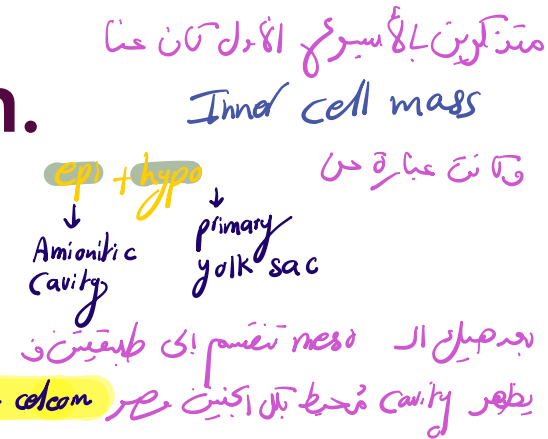 متذكرين بالأسبوع الأول كان عنا
n.
Inner cell mass
وكانت عبارة عن
epi + hypo
↓ ↓
Amionitic Cavity
primary yolk sac
بعد هيك الـ meso تنقسم الى طبقتين و
يظهر cavity مُحيط بكل الجنين وصر celcom